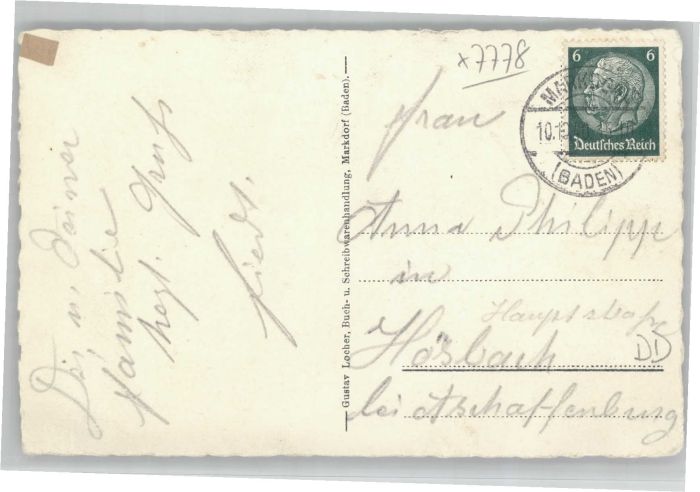 x7778
6 6
Deutsches Reich
MARKDORF
10.1
(BADEN)
Frau
Anna Philipp
in
Hauptstraße
Hösbach
DD
bei Aschaffenburg
Gustav Locher, Buch- u. Schreibwarenhandlung, Markdorf (Baden).
Dir u. Deiner
Familie
herzl. Gruß